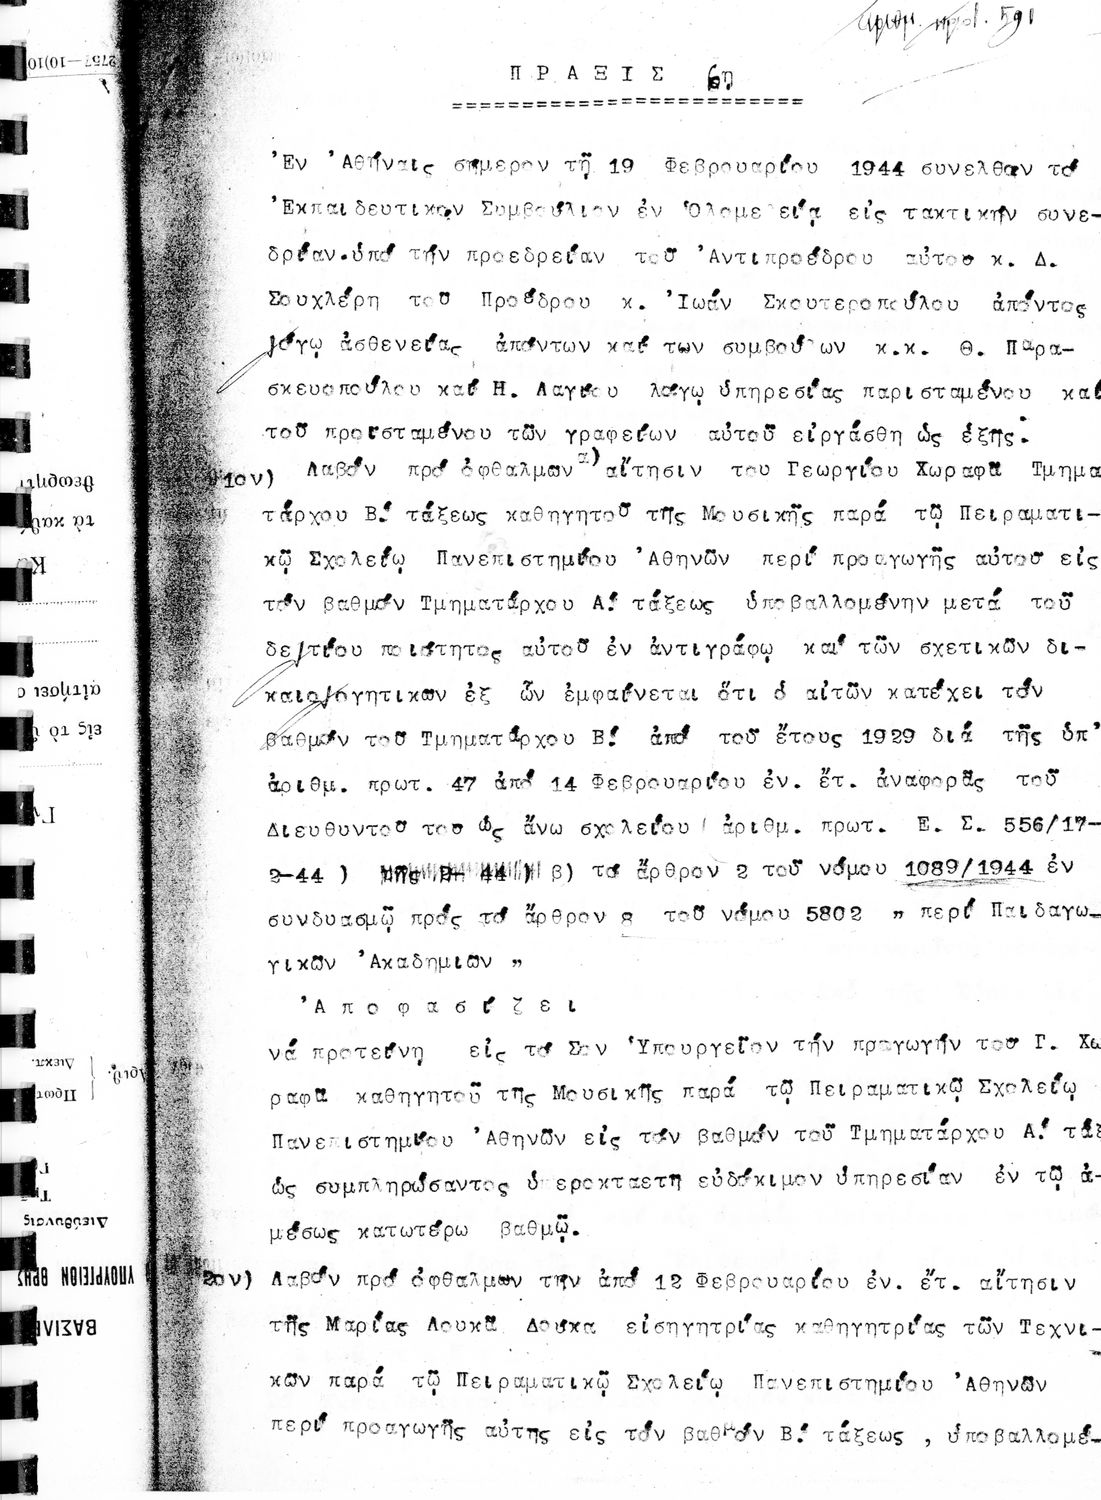 ἀριθμ. πρωτ. 591
ΠΡΑΞΙΣ 6η
Ἐν Ἀθήναις σήμερον τῇ 19 Φεβρουαρίου 1944 συνελθόν τό
Ἐκπαιδευτικόν Συμβούλιον ἐν Ὁλομελείᾳ εἰς τακτικήν συνε-
δρίαν.ὑπό τήν προεδρείαν τοῦ Ἀντιπροέδρου αὐτοῦ κ. Δ.
Σουχλέρη τοῦ Προέδρου κ. Ἰωάν Σκουτεροπούλου ἀπόντος
λόγῳ ἀσθενείας ἀπόντων καί των συμβούλων κ.κ. Θ. Παρα-
σκευοπούλου καί Η. Λαγίου λόγῳ ὑπηρεσίας παρισταμένου καί
τοῦ προισταμένου τῶν γραφείων αὐτοῦ εἰργάσθη ὡς ἑξῆς:
1ον) Λαβόν πρό ὀφθαλμῶν α) αἴτησιν του Γεωργίου Χωραφᾶ Τμημα
τάρχου Β.' τάξεως καθηγητοῦ τῆς Μουσικῆς παρά τῷ Πειραματι-
κῷ Σχολείῳ Πανεπιστημίου Ἀθηνῶν περί προαγωγῆς αὐτοῦ εἰς
τόν βαθμόν Τμηματάρχου Α.' τάξεως ὑποβαλλομένην μετά τοῦ
δελτίου ποιότητος αὐτοῦ ἐν ἀντιγράφῳ καί τῶν σχετικῶν δι-
καιολογητικων ἐξ ὧν ἐμφαίνεται ὅτι ὁ αἰτῶν κατέχει τόν
βαθμόν τοῦ Τμηματάρχου Β.' ἀπό τοῦ ἔτους 1929 διά τῆς ὑπ'
ἀριθμ. πρωτ. 47 ἀπό 14 Φεβρουαρίου ἐν. ἔτ. ἀναφορᾶς τοῦ
Διευθυντοῦ του ὡς ἄνω σχολείου ( ἀριθμ. πρωτ. Ε. Σ. 556/17-
2-44 ) β) τό ἄρθρον 2 τοῦ νόμου 1089/1944 ἐν
συνδυασμῷ πρός τό ἄρθρον 8 τοῦ νόμου 5802 " περί Παιδαγω-
γικῶν Ἀκαδημιῶν "
Ἀποφασίζει
νά προτείνῃ εἰς τό Σον Ὑπουργεῖον τήν πραγωγήν του Γ. Χω
ραφᾶ καθηγητοῦ τῆς Μουσικῆς παρά τῷ Πειραματικῷ Σχολείῳ
Πανεπιστημίου Ἀθηνῶν εἰς τόν βαθμόν τοῦ Τμηματάρχου Α.' τάξ
ὡς συμπληρώσαντος ὑπεροκταετῆ εὐδόκιμον ὑπηρεσίαν ἐν τῷ ἀ-
μέσως κατωτέρω βαθμῷ.
2ον) Λαβόν πρό ὀφθαλμων την ἀπό 12 Φεβρουαρίου ἐν. ἔτ. αἴτησιν
τῆς Μαρίας Λουκᾶ Δούκα εἰσηγητρίας καθηγητρίας τῶν Τεχνι-
κῶν παρά τῷ Πειραματικῷ Σχολείῳ Πανεπιστημίου Ἀθηνῶν
περί προαγωγῆς αὐτης εἰς τόν βαθμόν Β.' τάξεως , ὑποβαλλομέ-
2757—10)10
θεωρητι
τὰ καθ
αἰτήσει ο
εἰς τὸ
Διεκπ.
Πρωτ
Ἀριθ.
Διεύθυνσις
ΥΠΟΥΡΓΕΙΟΝ ΘΡΗΣ
ΒΑΣΙΛΕ